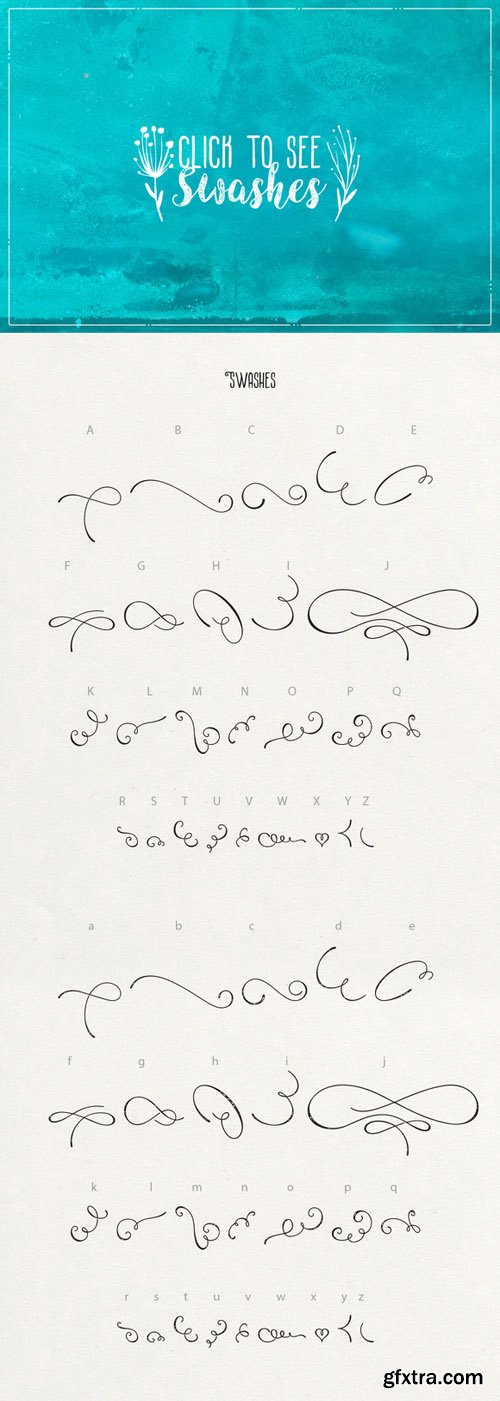 CLICK TO SEE
Swashes
SWASHES
A B C D E
F G H I J
K L M N O P Q
R S T U V W X Y Z
a b c d e
f g h i j
k l m n o p q
r s t u v w x y z
gfxtra.com